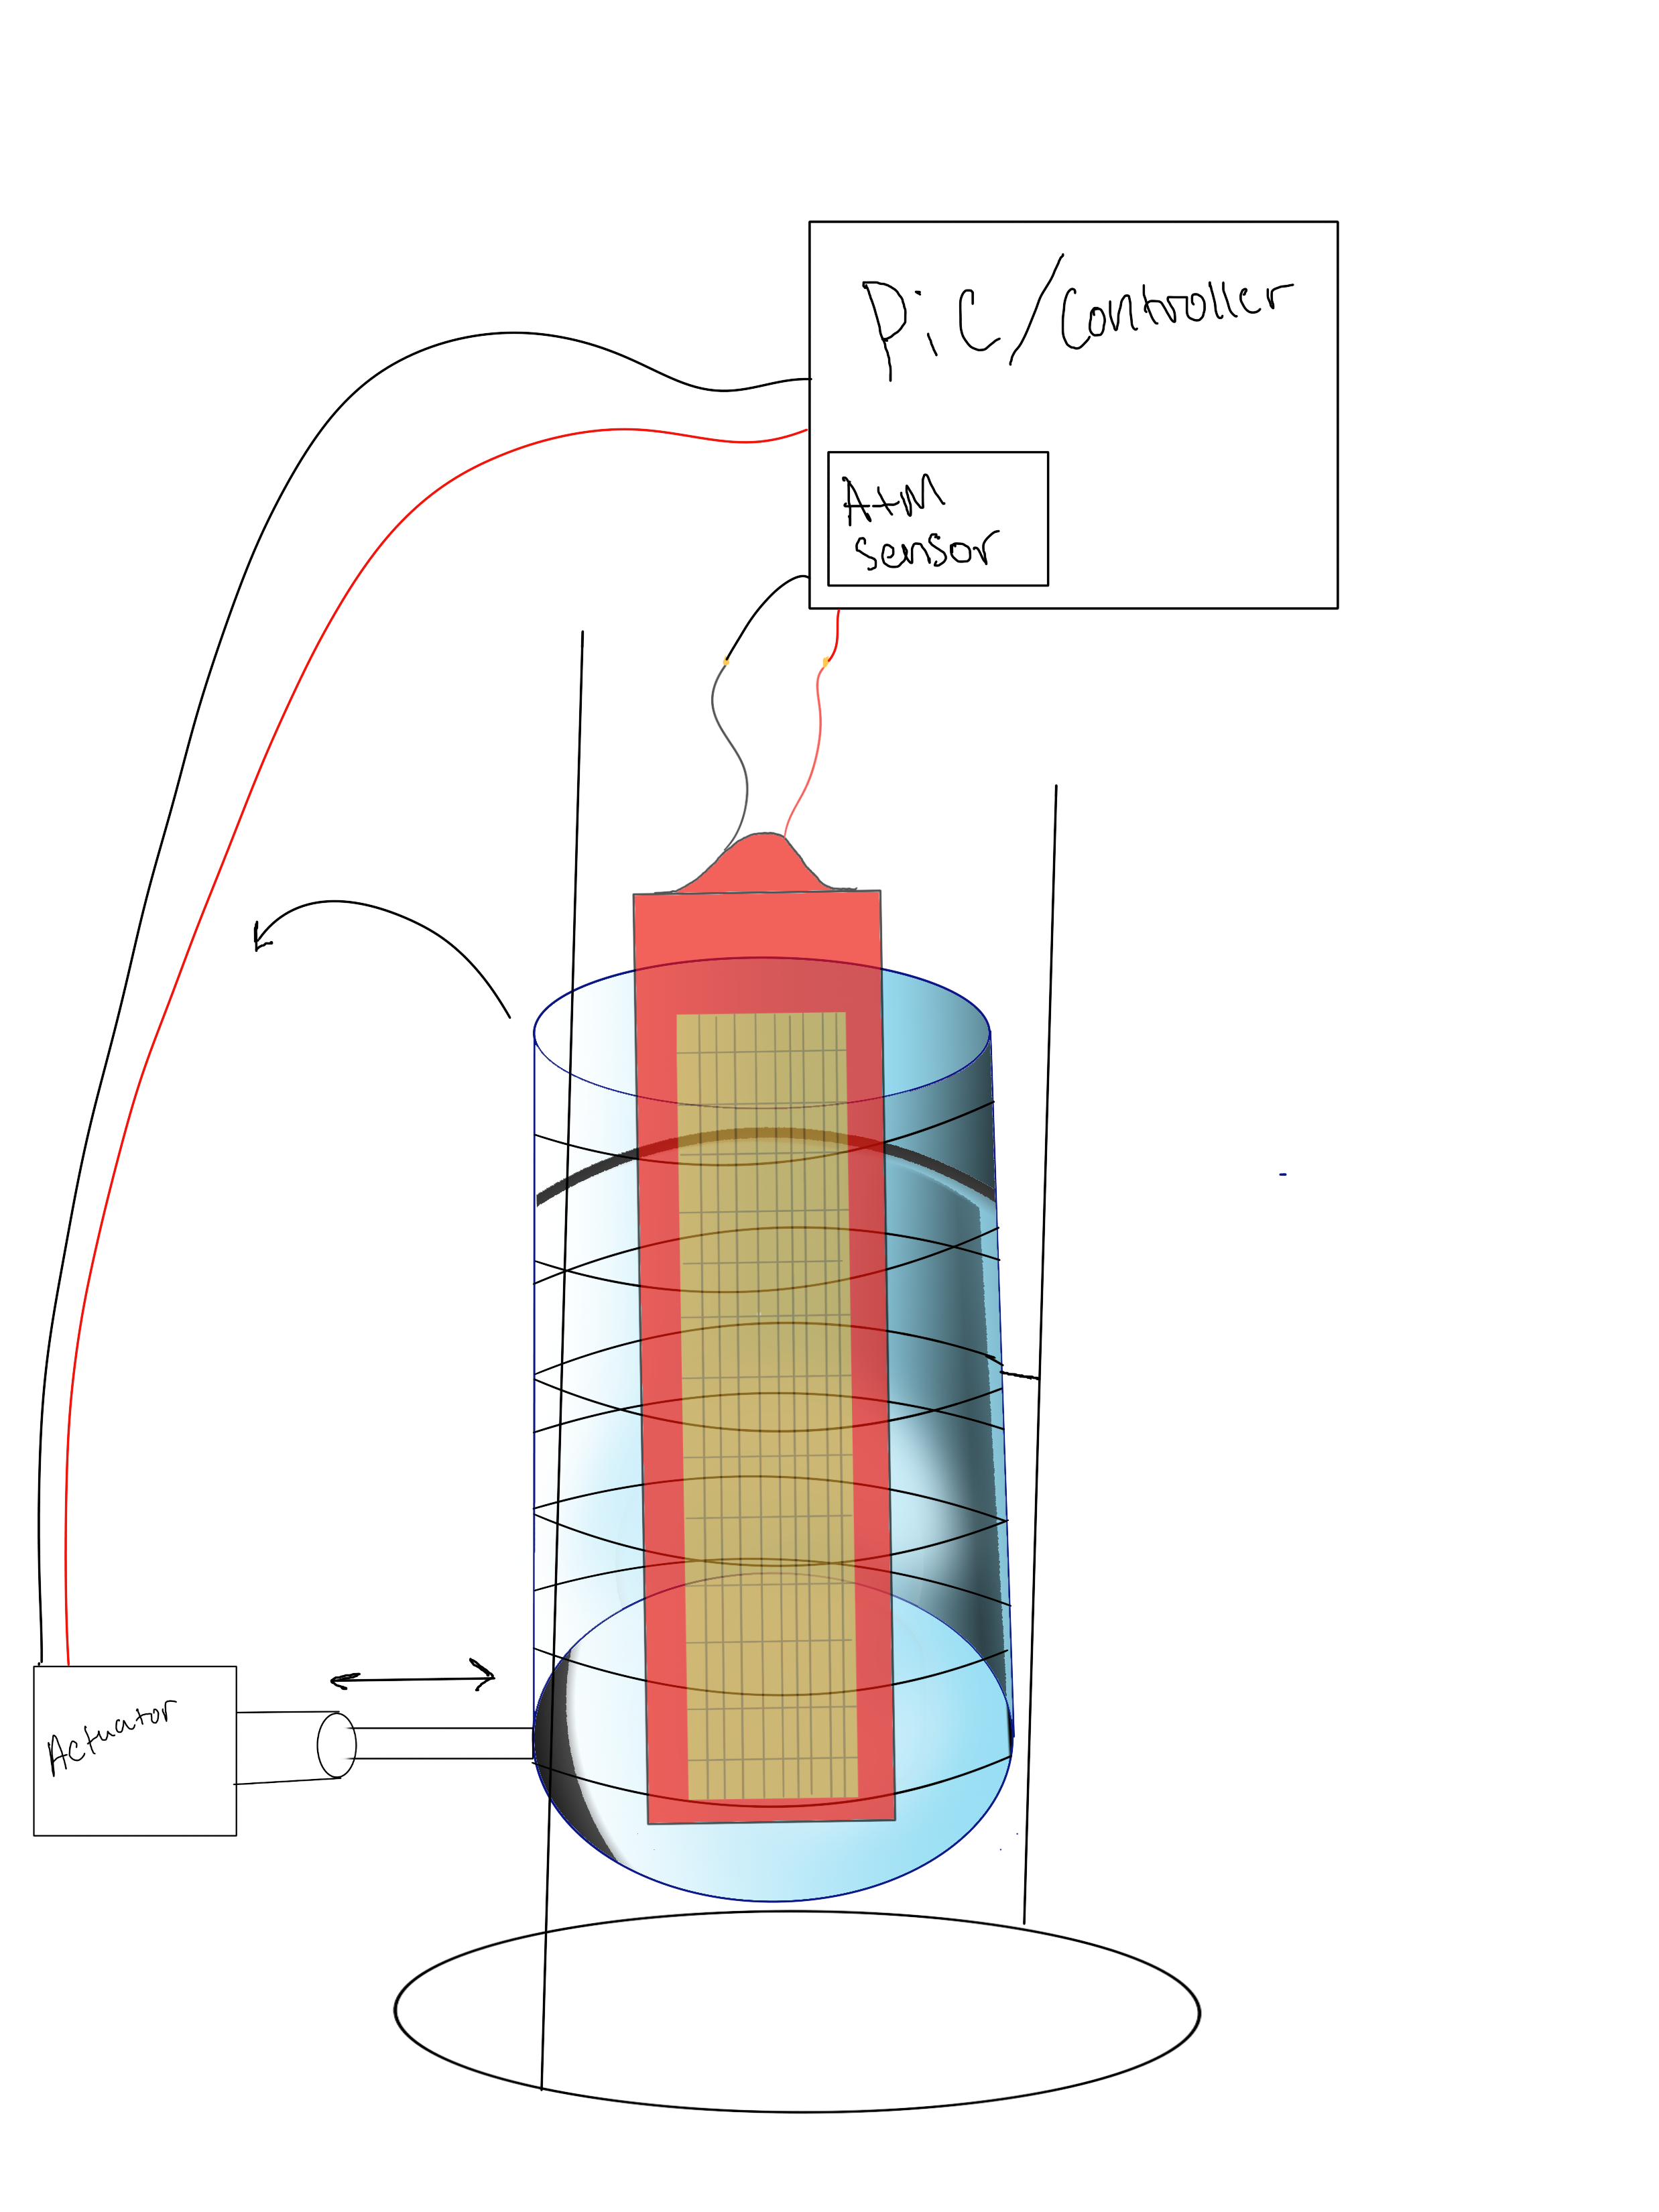 PiC/Controller
Atm
Sensor
Actuator